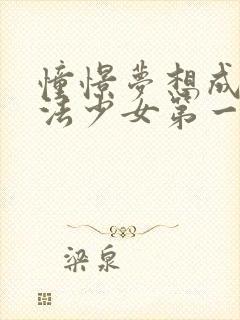 憧憬夢想成
法少女第一
梁泉